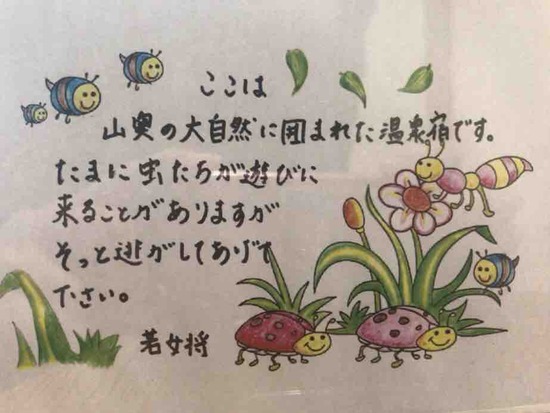 ここは
山奥の大自然に囲まれた温泉宿です。
たまに虫たちが遊びに
来ることがありますが
そっと逃がしてあげて
下さい。
若女将